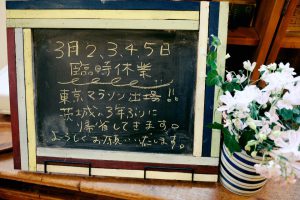 3月2.3.4.5日
臨時休業
東京マラソン出場!!
茨城へ3年ぶりに
帰省してきます。
よろしくお願い致します。